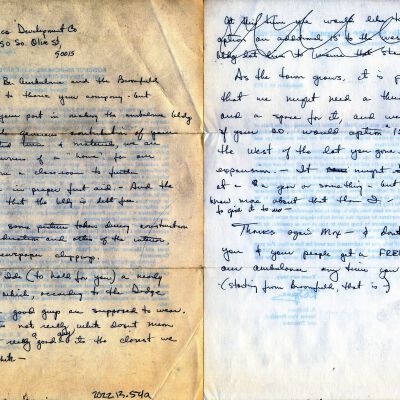 co Development Co
50 So. Olive St,
90015
Be Ambulance and the Bromfield
to thank your company - but
your part in making the ambulance bldg
generous contribution of your
time & materials, we are
owners of a "home" for our
a classroom to further
in proper first aid - And the
that the bldg is debt free
some pictures taken during construction
dedication and others of the interior
newspaper clippings.
(to hold for you) a nearly
which, according to the Dodge
good guys are supposed to wear.
not really white doesn't mean
really good guy its the closest we
white -
2022.13.54a
At this time we would like
option an additional 15 to the west
bldg lot
As the town grows, it is p
that we might need a thi
and a space for it, and wo
if your co. would option 15
the west of the lot you gave
expansion. - It might
at a $1 a year or something - but
know more about that than I. -
to give it to us -
Thanks again Mrx - & don't
you & your people get a FREE
our ambulance any time you
(starting from Bromfield, that is)